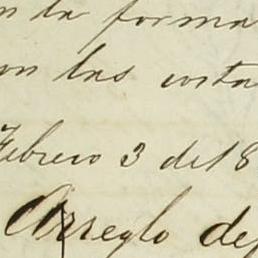 en la forma
on las
Febrero 3 del 8
Arreglo de